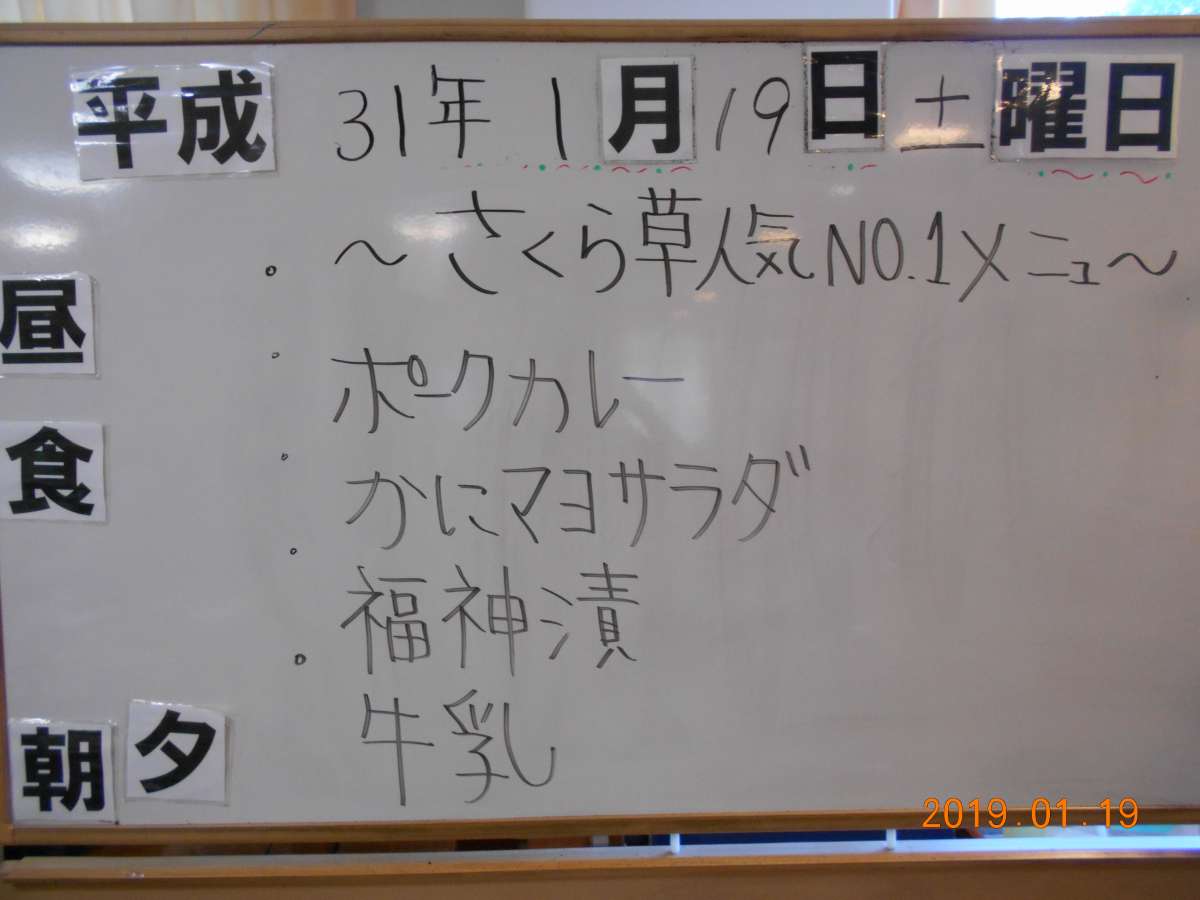 平成 31年 1月 19日 土曜日
～さくら草人気NO.1メニュ～
昼食
ポークカレー
かにマヨサラダ
福神漬
牛乳
朝 夕
2019.01.19